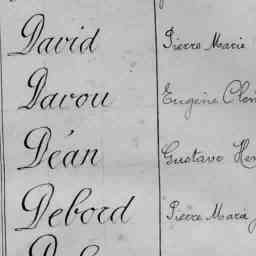 David Pierre Marie
Davou Eugène
Déan Gustave
Debord Pierre Marie